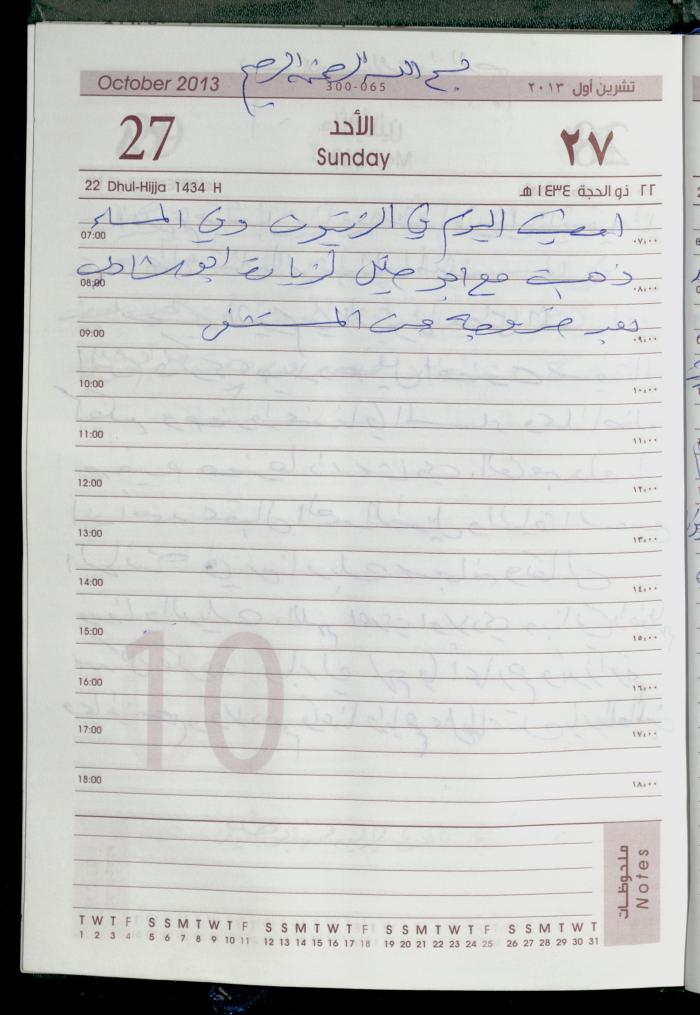 بسم الله الرحمن الرحيم
October 2013 300-065 تشرين أول ٢٠١٣
27 الأحد ٢٧
Sunday
22 Dhul-Hijja 1434 H ٢٢ ذو الحجة ١٤٣٤ هـ
امضيت اليوم في الزيتون وفي المساء
07:00 ٠٧,٠٠
ذهبت مع ابو خليل لزيارة ابو شادي
08:00 ٠٨,٠٠
بعد خروجه من المستشفى
09:00 ٠٩,٠٠
10:00 ١٠,٠٠
11:00 ١١,٠٠
12:00 ١٢,٠٠
13:00 ١٣,٠٠
14:00 ١٤,٠٠
15:00 ١٥,٠٠
10
16:00 ١٦,٠٠
17:00 ١٧,٠٠
18:00 ١٨,٠٠
ملحوظات
Notes
T W T F S S M T W T F S S M T W T F S S M T W T F S S M T W T
1 2 3 4 5 6 7 8 9 10 11 12 13 14 15 16 17 18 19 20 21 22 23 24 25 26 27 28 29 30 31